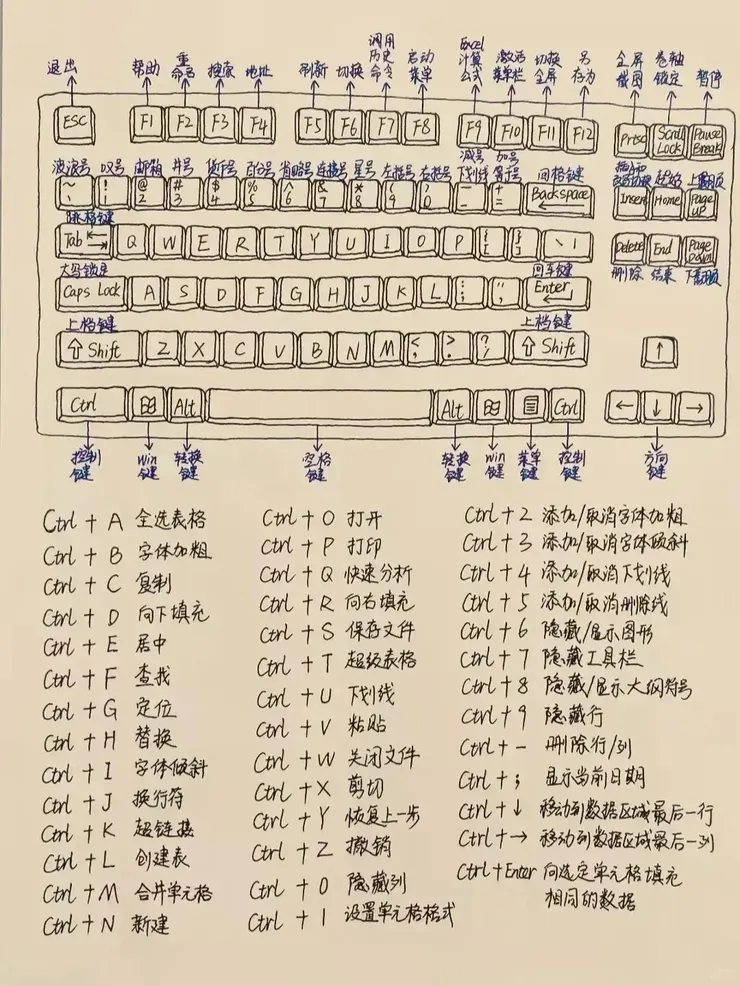 退出 帮助 重命名 搜索 地址 刷新 切换 调用历史命令 启动菜单 Excel计算公式 激活菜单栏 切换全屏 另存为 全屏截图 卷轴锁定 暂停
ESC F1 F2 F3 F4 F5 F6 F7 F8 F9 F10 F11 F12 Prtsc Scroll Lock Pause Break
波浪号 叹号 邮箱 井号 货币号 百分号 省略号 连接号 星号 左括号 右括号 减号下划线 加号等号 回格键 起始 上翻页
~ ` ! 1 @ 2 # 3 $ 4 % 5 ^ 6 & 7 * 8 ( 9 ) 0 _ - + = Backspace Insert Home Page up
跳格键
Tab Q W E R T Y U I O P { [ } ] \ | Delete End Page Down
大写锁定 回车键 删除 结束 下翻页
Caps Lock A S D F G H J K L : ; " ' Enter
上档键 上档键
Shift Z X C V B N M < , > . ? / Shift ↑
Ctrl Alt Alt Ctrl ← ↓ →
控制键 win键 转换键 空格键 转换键 win键 菜单键 控制键 方向键
Ctrl + A 全选表格
Ctrl + B 字体加粗
Ctrl + C 复制
Ctrl + D 向下填充
Ctrl + E 居中
Ctrl + F 查找
Ctrl + G 定位
Ctrl + H 替换
Ctrl + I 字体倾斜
Ctrl + J 换行符
Ctrl + K 超链接
Ctrl + L 创建表
Ctrl + M 合并单元格
Ctrl + N 新建
Ctrl + O 打开
Ctrl + P 打印
Ctrl + Q 快速分析
Ctrl + R 向右填充
Ctrl + S 保存文件
Ctrl + T 超级表格
Ctrl + U 下划线
Ctrl + V 粘贴
Ctrl + W 关闭文件
Ctrl + X 剪切
Ctrl + Y 恢复上一步
Ctrl + Z 撤销
Ctrl + 0 隐藏列
Ctrl + 1 设置单元格格式
Ctrl + 2 添加/取消字体加粗
Ctrl + 3 添加/取消字体倾斜
Ctrl + 4 添加/取消下划线
Ctrl + 5 添加/取消删除线
Ctrl + 6 隐藏/显示图形
Ctrl + 7 隐藏工具栏
Ctrl + 8 隐藏/显示大纲符号
Ctrl + 9 隐藏行
Ctrl + - 删除行/列
Ctrl + ; 显示当前日期
Ctrl + ↓ 移动到数据区域最后一行
Ctrl + → 移动到数据区域最后一列
Ctrl + Enter 向选定单元格填充
相同的数据